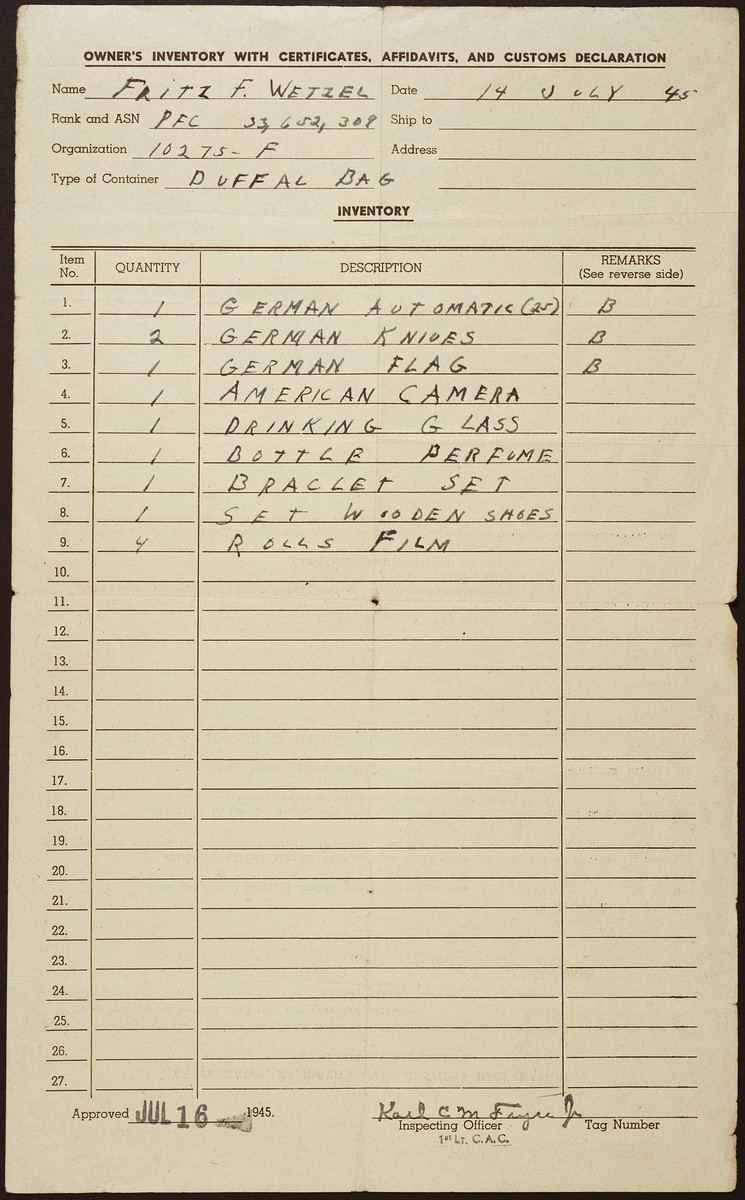 OWNER'S INVENTORY WITH CERTIFICATES, AFFIDAVITS, AND CUSTOMS DECLARATION
Name FRITZ F. WETZEL Date 14 JULY 45
Rank and ASN PFC 33,652,309 Ship to
Organization 10275-F Address
Type of Container DUFFAL BAG
INVENTORY
Item No. QUANTITY DESCRIPTION REMARKS (See reverse side)
1. 1 GERMAN AUTOMATIC (25) B
2. 2 GERMAN KNIVES B
3. 1 GERMAN FLAG B
4. 1 AMERICAN CAMERA
5. 1 DRINKING GLASS
6. 1 BOTTLE PERFUME
7. 1 BRACLET SET
8. 1 SET WOODEN SHOES
9. 4 ROLLS FILM
10.
11.
12.
13.
14.
15.
16.
17.
18.
19.
20.
21.
22.
23.
24.
25.
26.
27.
Approved JUL 16 1945. Karl C. M Jr
Inspecting Officer Tag Number
1st Lt. C.A.C.